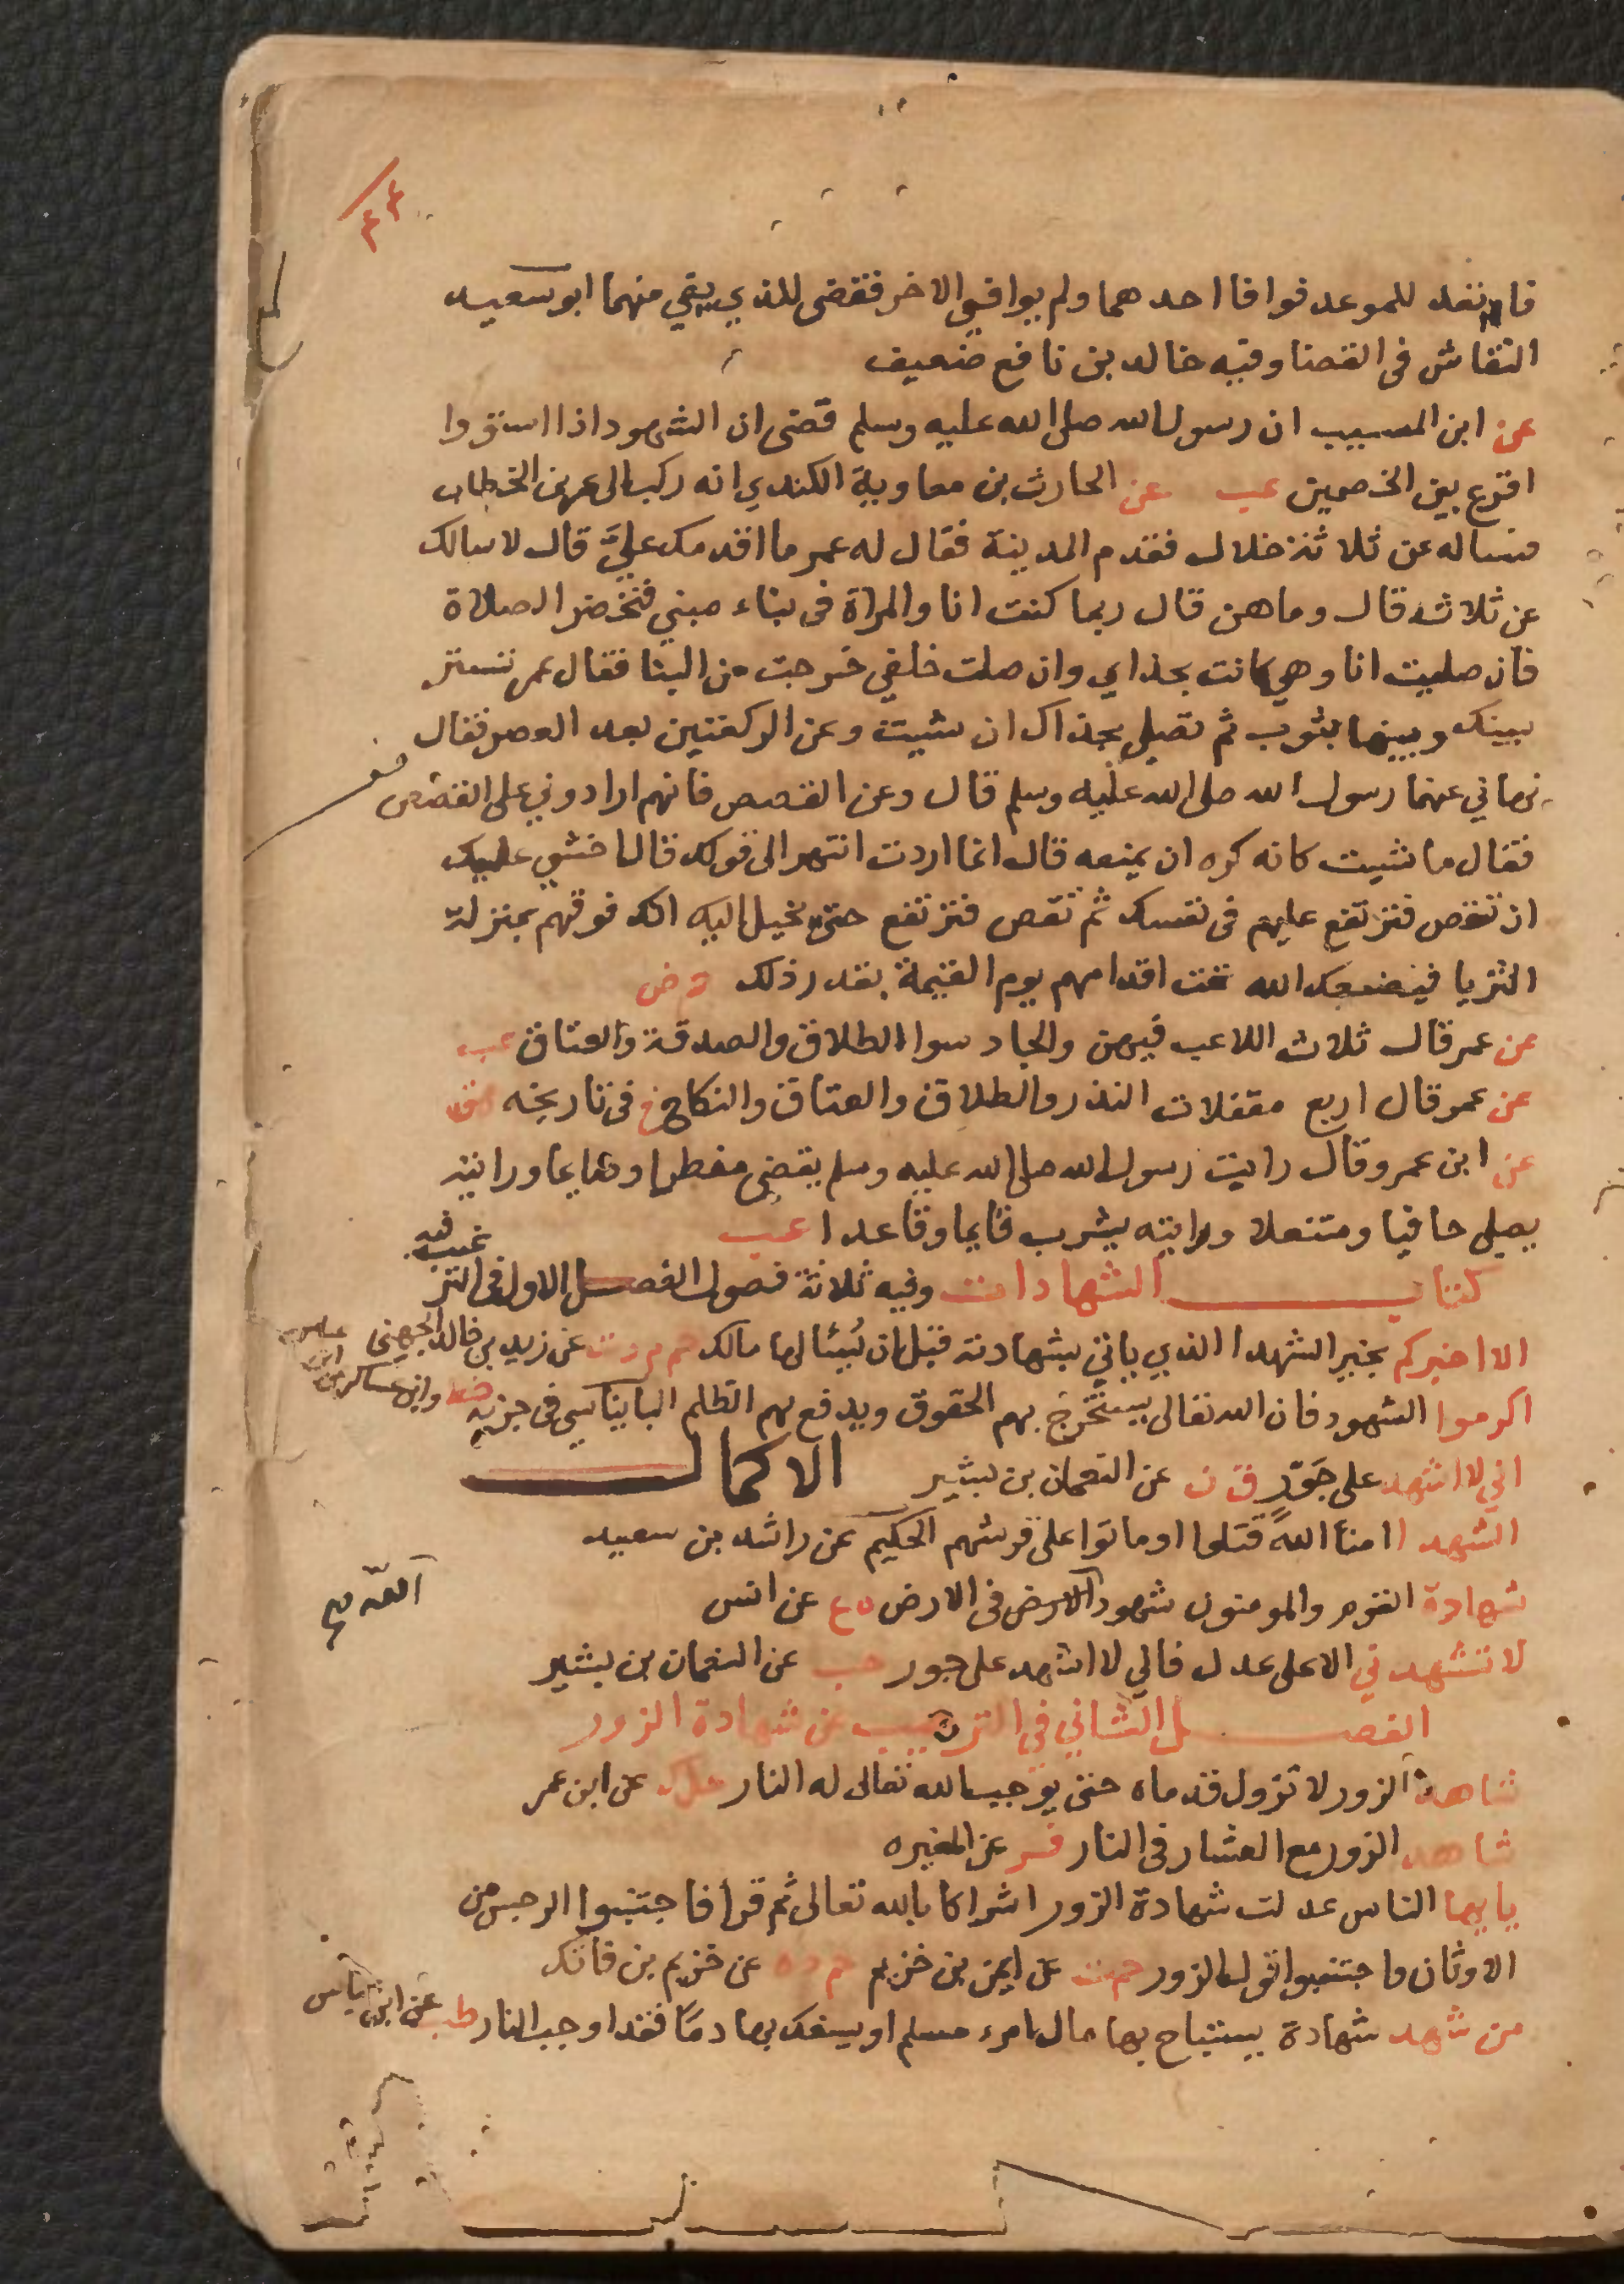 ٤٤
نفد للموعد فوافا احدهما ولم يوافي الاخر فقضى للذي بقي منهما ابو سعيد
النقاش فى القضا وفيه خالد بن نافع ضعيف
عن ابن المسيب ان رسول الله صلى الله عليه وسلم قضى ان الشهود اذا استووا
اقرع بين الخصمين عب عن الحارث بن معاوية الكندي انه ركب الى عمر بن الخطاب
فساله عن ثلاثة خلال فقدم المدينة فقال له عمر ما اقدمك عليَّ قال لاسالك
عن ثلاث قال وما هن قال ربما كنت انا والمراة فى بناء مبني فتخضر الصلاة
فان صليت انا وهي كانت بحذاي وان صلت خلفي خرجت من البنا فقال عمر تستر
بينك وبينها بثوب ثم تصلي بحذاك ان شيت وعن الركعتين بعد العصر فقال
نهاني عنها رسول الله صلى الله عليه وسلم قال وعن القصص فانهم ارادوني على القصص
فقال ما شيت كانه كره ان يمنعه قال انما اردت انتهى الى قولك قال اخشى عليك
ان تقص فترتفع عليهم فى نفسك ثم تقص فترتفع حتى يخيل اليك انك فوقهم بمنزلة
الثريا فيضعك الله تحت اقدامهم يوم القيمة بقدر ذلك حم ض
عن عمر قال ثلاث اللاعب فيهن والجاد سوا الطلاق والصدقة والعتاق عب
عن عمر قال اربع مقفلات النذر والطلاق والعتاق والنكاح خ فى تاريخه هق
عن ابن عمرو قال رايت رسول الله صلى الله عليه وسلم يقضي مفطرا وصايما ورايته
يصلي حافيا ومتنعلا ورايته يشرب قايما وقاعدا عب
كتاب الشهادات وفيه ثلاثة فصول الفصل الاول فى الترغيب فيه
الا اخبركم بخير الشهدا الذي ياتي بشهادته قبل ان يُسئالها مالك حم م د ت عن زيد بن خالد الجهنى
اكرموا الشهود فان الله تعالى يستخرج بهم الحقوق ويدفع بهم الظلم البانياسي فى جزيه خط وابن عساكر عن ابن عباس
اني لا اشهد على جَوْر ق ن عن النعمان بن بشير الاكمال
الشهدا امناَ اللهَ قتلوا او ماتوا على فرشهم الحكيم عن راشد بن سعيد
شهادة القوم والمومنون شهود الارض فى الارض ه ع عن انس
الله صح
لا تشهدني الا على عدل فاني لا اشهد على جور حب عن النعمان بن بشير
الفصل الثاني في الترهيب عن شهادة الزور
شاهد الزور لا تزول قدماه حتى يوجب الله تعالى له النار حل ك عن ابن عمر
شاهد الزور مع العشار فى النار فر عن المغيره
يا يها الناس عدلت شهادة الزور اشراكا بالله تعالى ثم قرا فاجتنبوا الرجس من
الاوثان واجتنبوا قول الزور حم ت عن ايمن بن خزيم حم د ه عن خزيم بن فاتك
من شهد شهادة يستباح بها مال امرء مسلم او يسفك بها دمًا فقد اوجب النار طب عن ابن عباس